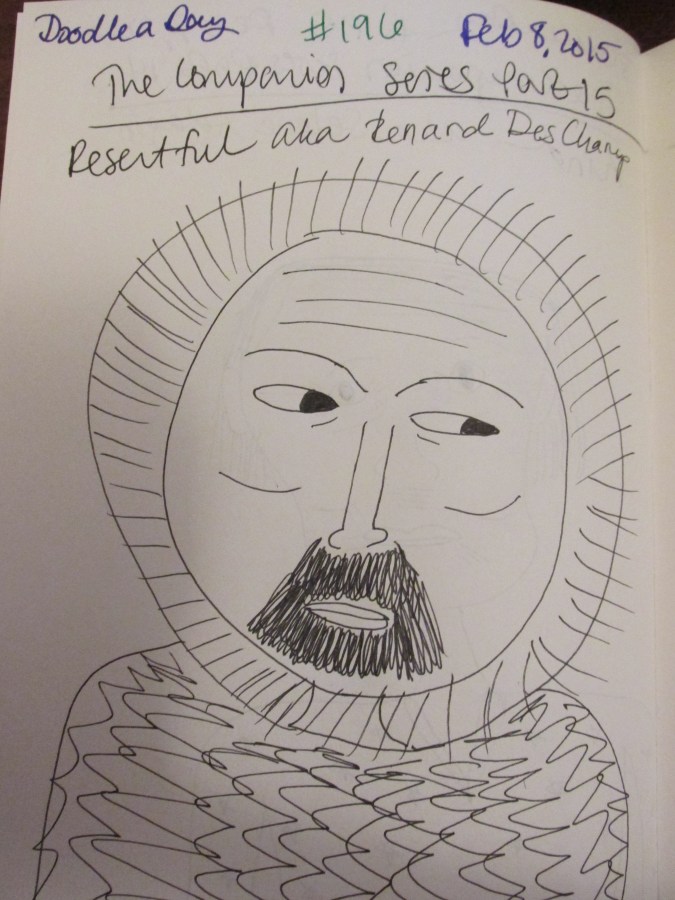 Doodle a Day #196 Feb 8, 2015
The Companion Series Part 15
Resentful aka Renard Des Champ